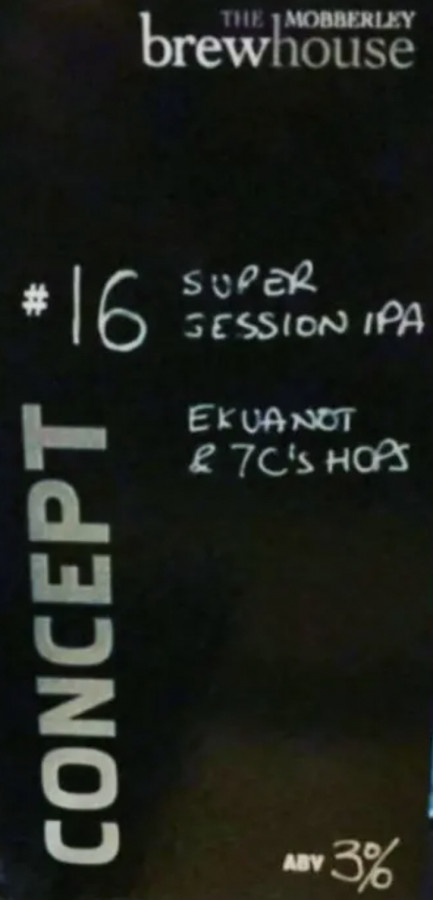 THE MOBBERLEY
brewhouse
#16 SUPER
SESSION IPA
EKUANOT
& 7C's HOPS
CONCEPT
ABV 3%